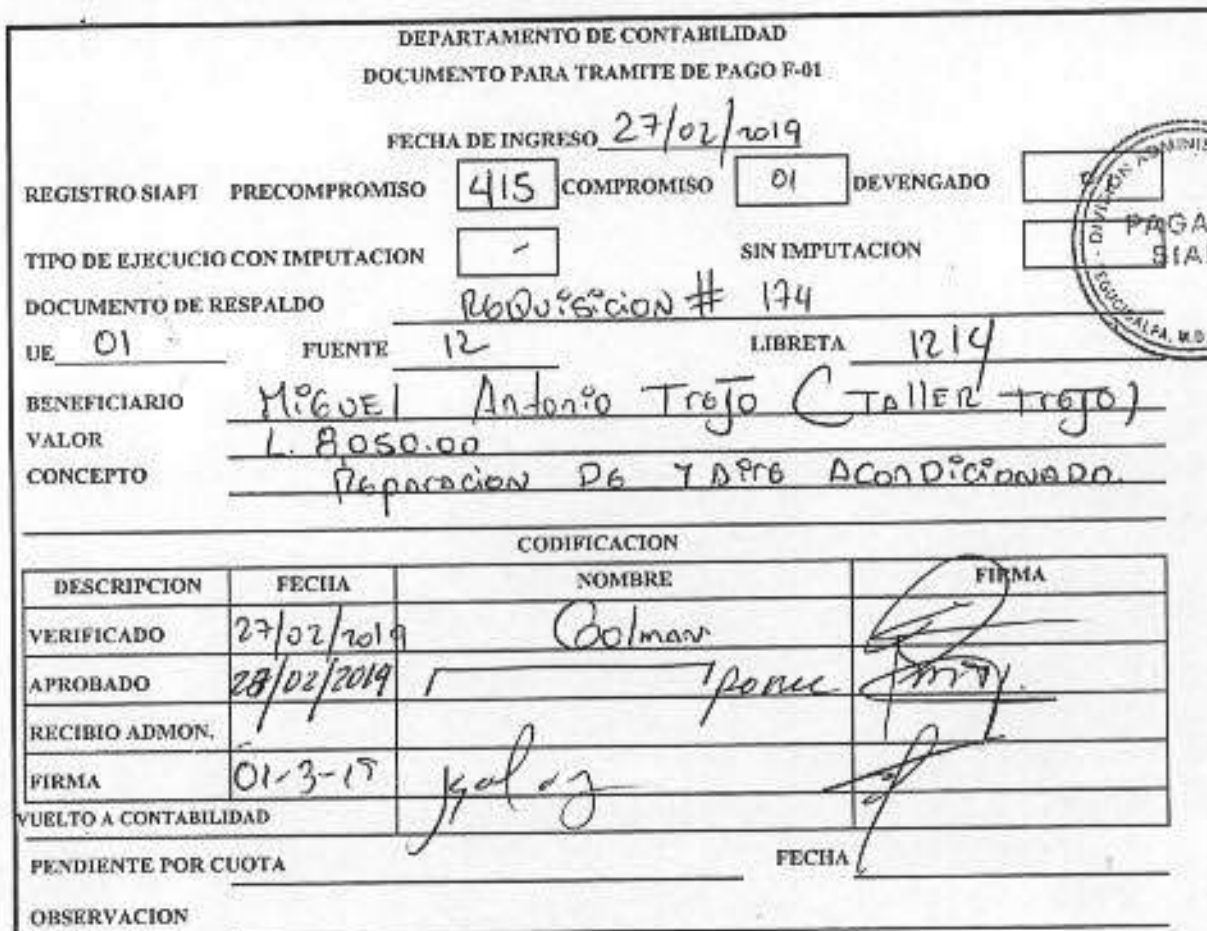 DEPARTAMENTO DE CONTABILIDAD
DOCUMENTO PARA TRAMITE DE PAGO F-01
FECHA DE INGRESO 27/02/2019
REGISTRO SIAFI PRECOMPROMISO 415 COMPROMISO 01 DEVENGADO
TIPO DE EJECUCIO CON IMPUTACION - SIN IMPUTACION
DOCUMENTO DE RESPALDO Requisicion # 174
UE 01 FUENTE 12 LIBRETA 1214
BENEFICIARIO MiGUEl Antonio Trejo (TAllER Trejo)
VALOR L. 8,050.00
CONCEPTO Reparacion De 7 Aire AconDicionaDo.
CODIFICACION
DESCRIPCION FECHA NOMBRE FIRMA
VERIFICADO 27/02/2019 Colman
APROBADO 28/02/2019 Ponce
RECIBIO ADMON.
FIRMA 01-3-19
VUELTO A CONTABILIDAD
PENDIENTE POR CUOTA FECHA
OBSERVACION